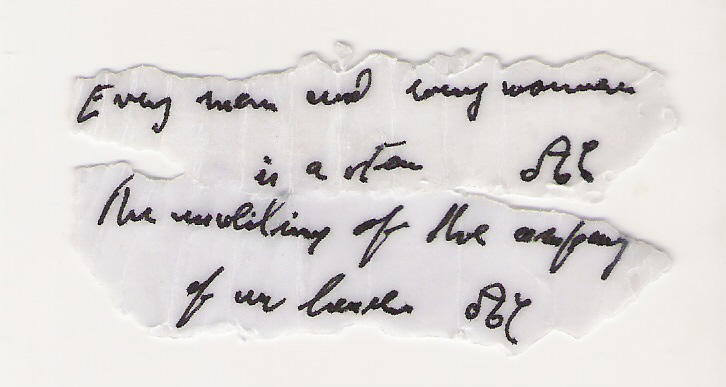 Every man and every woman
is a star
The unveiling of the company
of